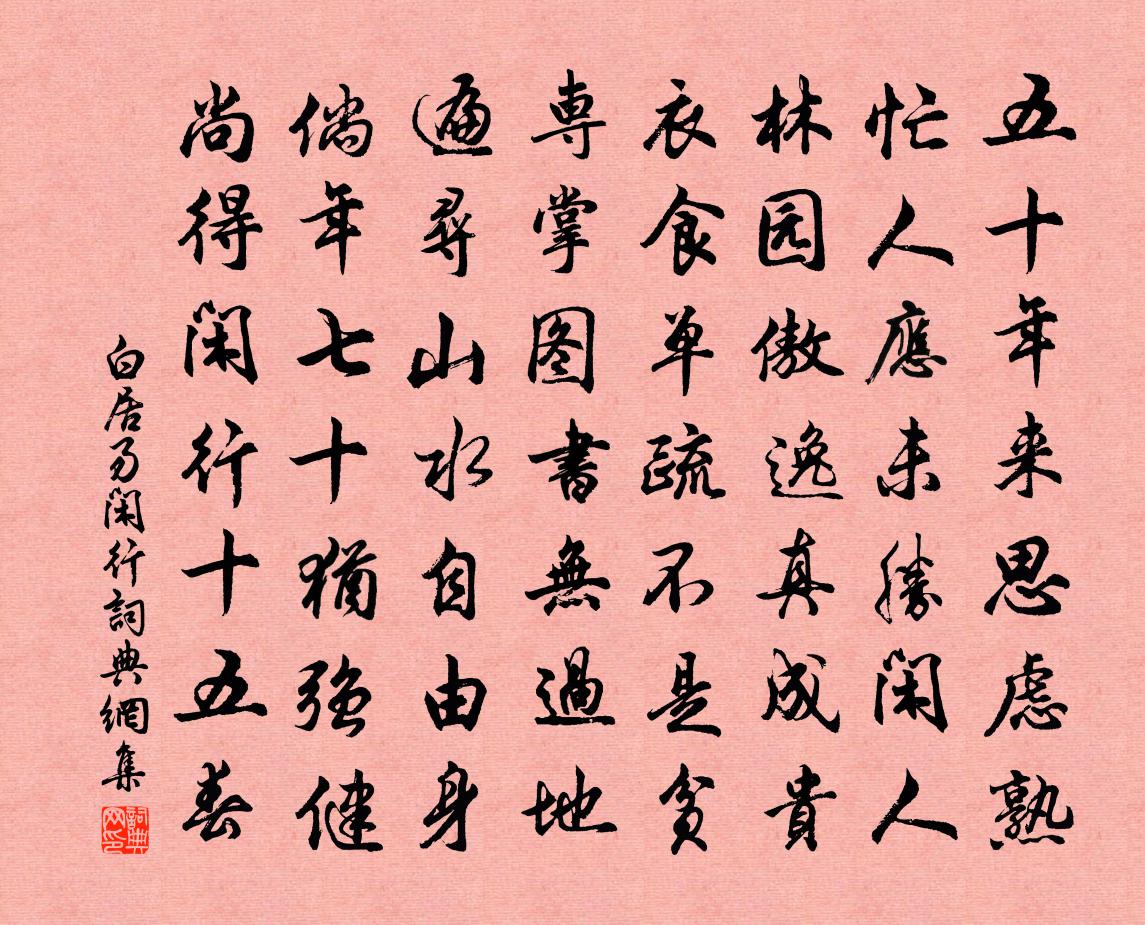 五十年来思慮熟
忙人應未勝闲人
林园傲逸真成貴
衣食单疏不是貧
専掌图書無過地
遍尋山水自由身
倘年七十猶强健
尚得闲行十五春
白居易闲行詞典網集
詞典网印